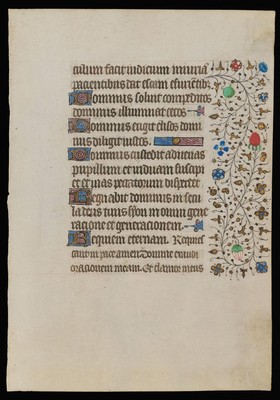 culum facit iudicium iniuria
pacientibus dat escam esurientibz
Dominus soluit compeditos
dominus illuminat cecos
Dominus erigit elisos domi
nus diligit iustos.
Dominus custodit aduenas
pupillum et viduam suscipi
et et vias peccatorum disperdet
Regnabit dominus in secu
la deus tuus syon in omni gene
ratione et generationem.
Requiem eternam. Requies
cant in pace amen. Domine exaudi
orationem meam. Et clamor meus